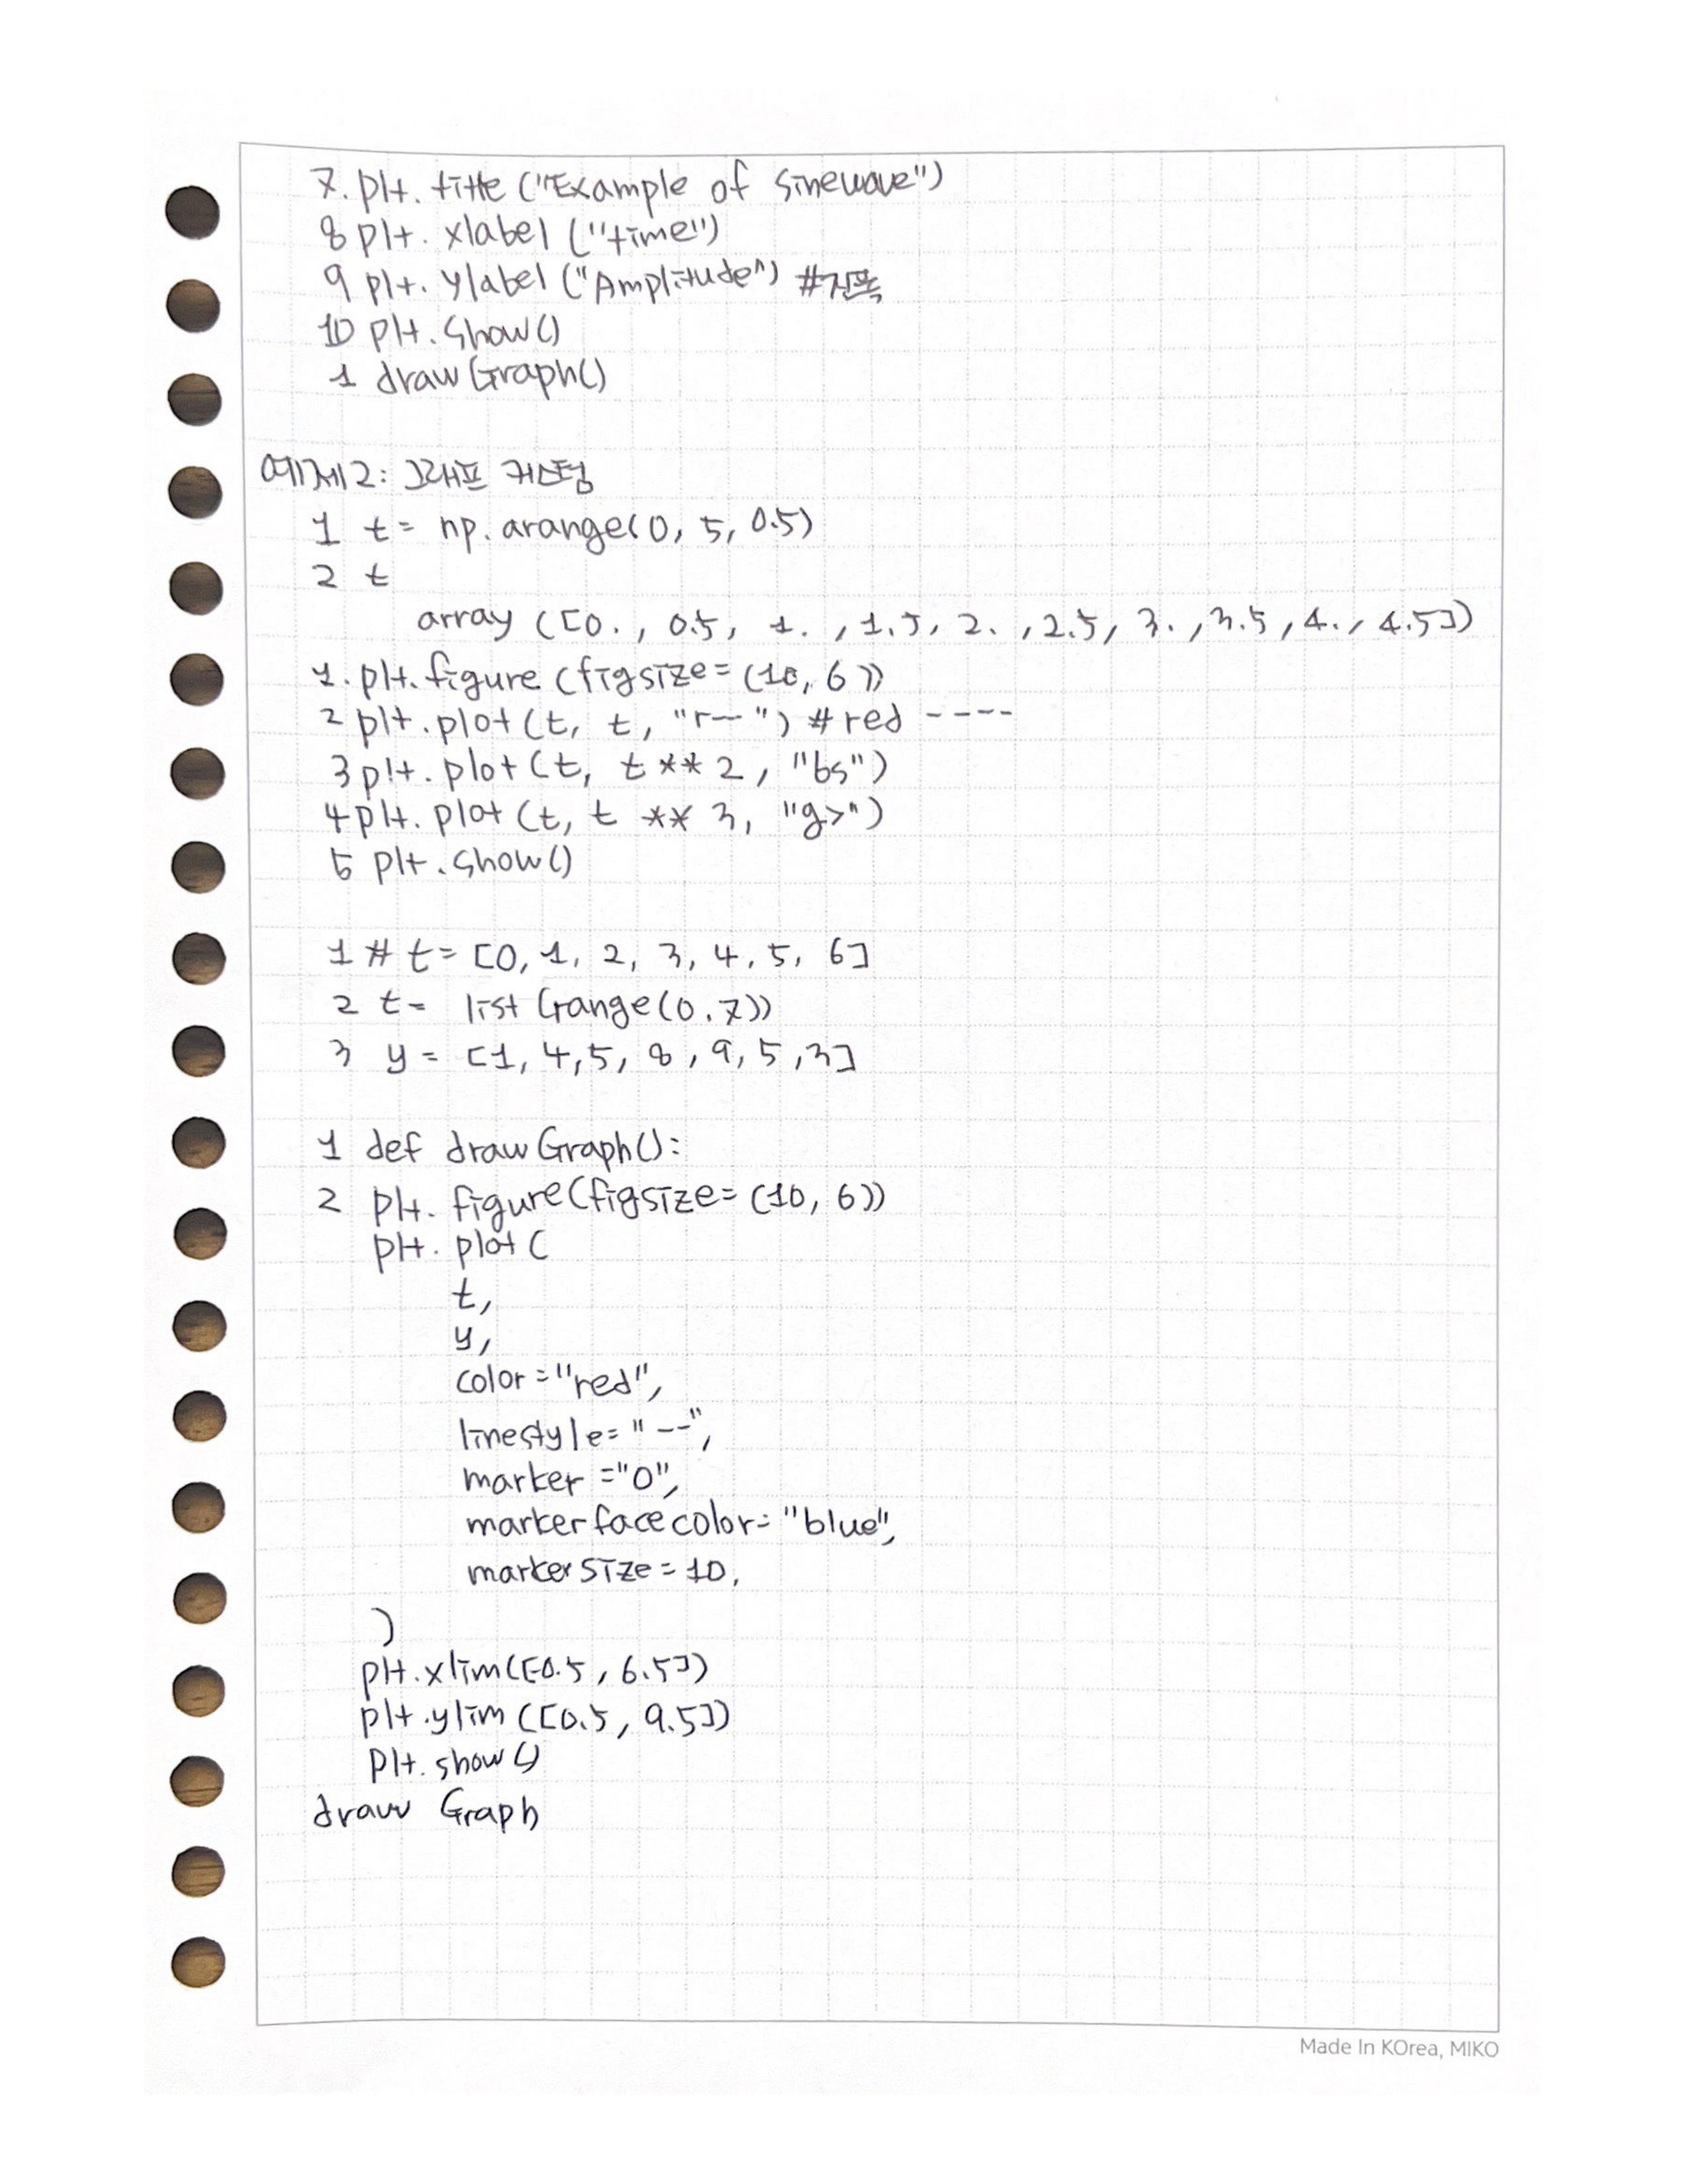 7. plt. title ("Example of sinewave")
8 plt. xlabel ("time")
9 plt. ylabel ("Amplitude") #진폭
10 plt. show()
1 drawGraph()
예제2: 그래프 커스텀
1 t = np. arange(0, 5, 0.5)
2 t
array ([0. , 0.5, 1. , 1.5, 2. , 2.5, 3. , 3.5, 4. , 4.5])
1. plt. figure (figsize = (10, 6))
2 plt. plot (t, t, "r--") # red ----
3 plt. plot (t, t ** 2, "bs")
4 plt. plot (t, t ** 3, "g>")
5 plt. show()
1 # t = [0, 1, 2, 3, 4, 5, 6]
2 t = list (range(0, 7))
3 y = [1, 4, 5, 8, 9, 5, 3]
1 def drawGraph():
2 plt. figure(figsize = (10, 6))
plt. plot (
t,
y,
color = "red",
linestyle = "--",
marker = "o",
markerfacecolor = "blue",
markersize = 10,
)
plt. xlim([-0.5, 6.5])
plt. ylim ([0.5, 9.5])
plt. show()
draw Graph
Made In KOrea, MIKO